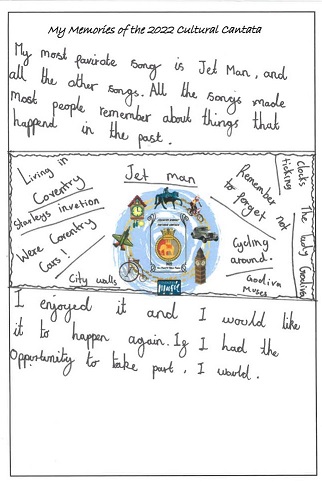 My Memories of the 2022 Cultural Cantata
My most favirote song is Jet Man, and
all the other songs. All the songs made
most people remember about things that
happend in the past.
Living in
Coventry
Jet man
Remember not
to forget
clocks
ticking
The lady Godiva
Stanleys invetion
Were Coventry
Cars!
City walls
Cycling
around.
Godiva
Muses
Music
I enjoyed it and I would like
it to happen again. If I had the
Opportunity to take part, I would.